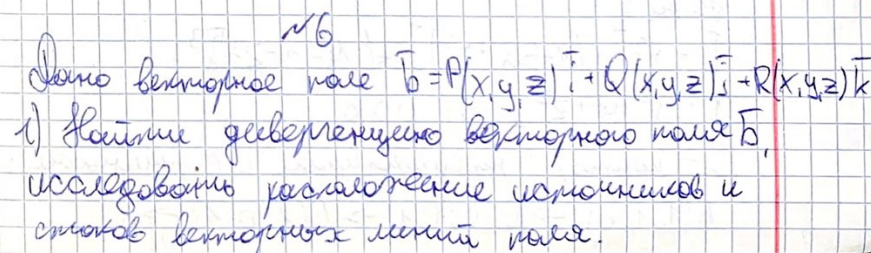 №6
Дано векторное поле b̅ = P(x,y,z) i̅ + Q(x,y,z) j̅ + R(x,y,z) k̅
1) Найти дивергенцию векторного поля b̅,
исследовать расположение источников и
стоков векторных линий поля.